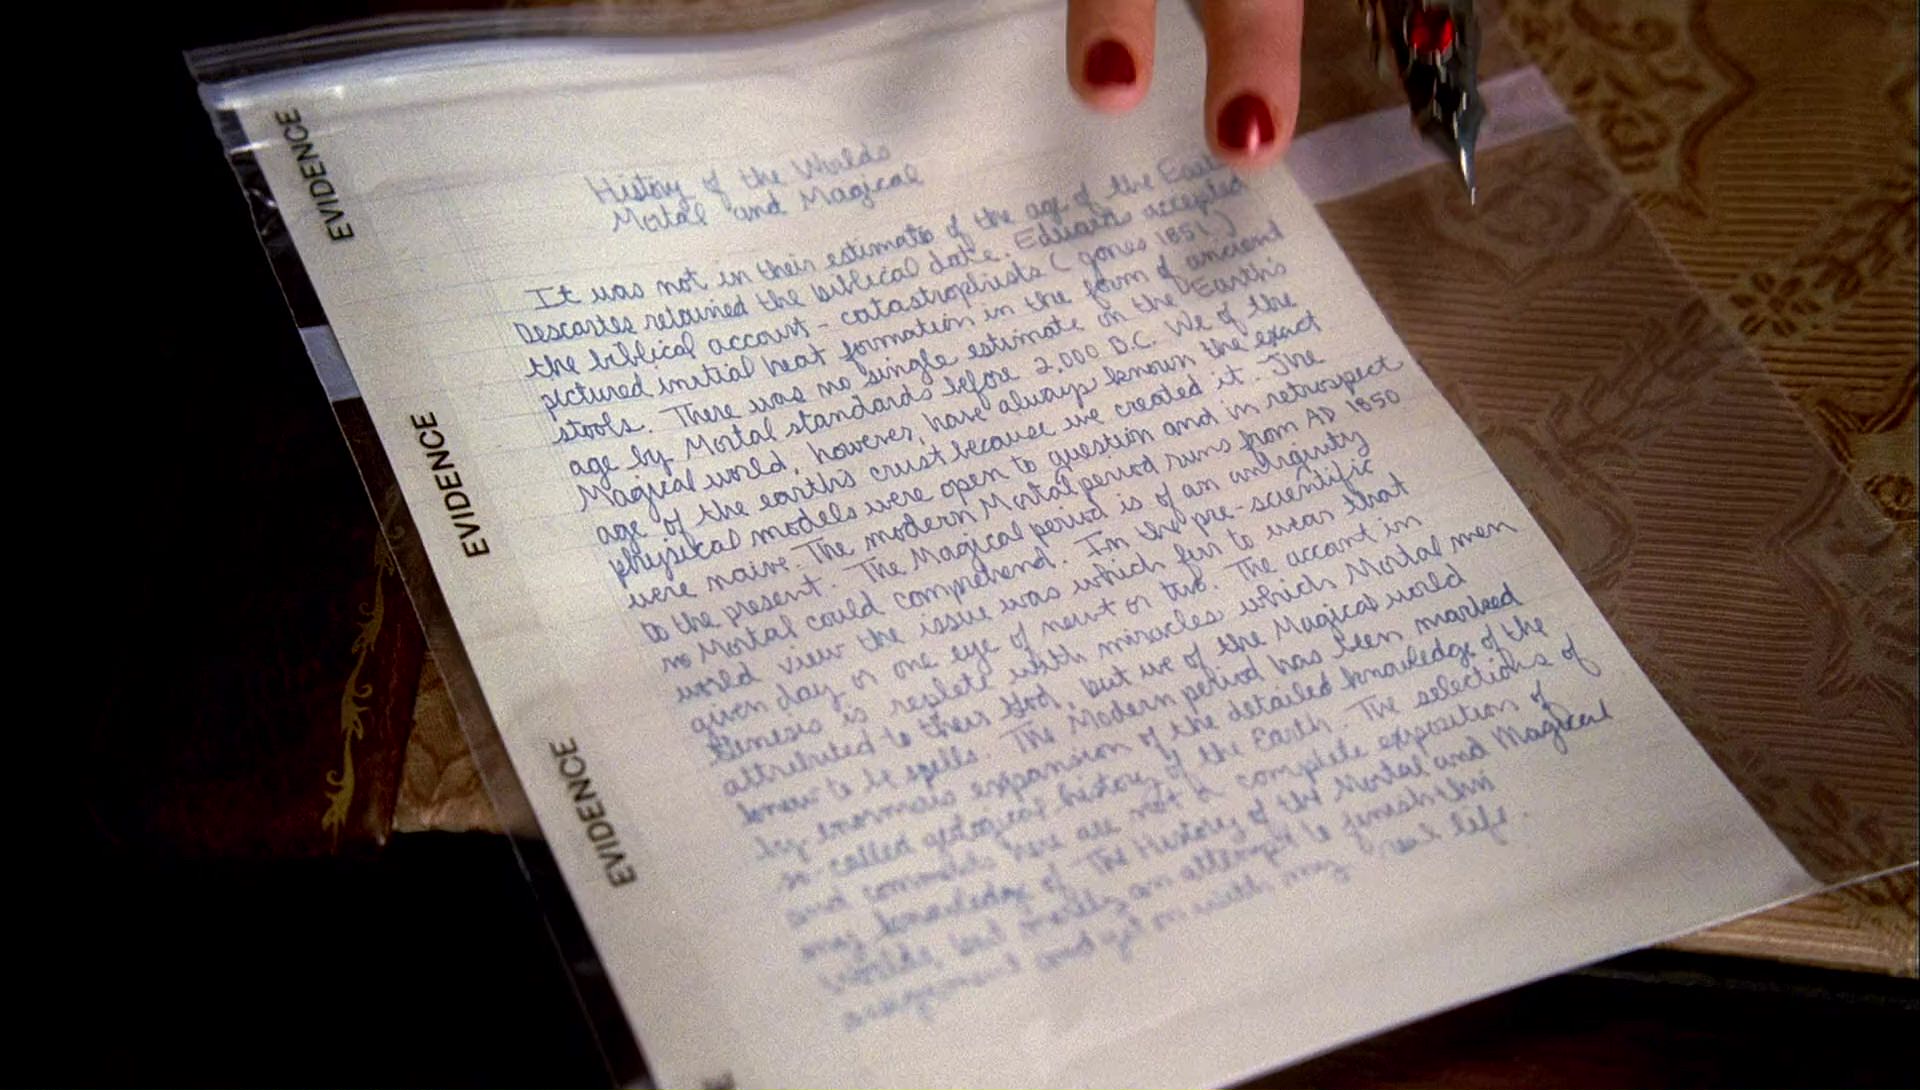 EVIDENCE
EVIDENCE
EVIDENCE
History of the Worlds
Mortal and Magical
It was not in their estimate of the age of the Earth
Descartes retained the biblical date. accepted
the biblical account - catastrophists (Jones 1851)
pictured initial heat formation in the form of ancient
stools. There was no single estimate on the Earth's
age by Mortal standards before 2,000 B.C. We of the
Magical world, however, have always known the exact
age of the earth's crust because we created it. The
physical models were open to question and in retrospect
were naive. The modern Mortal period runs from AD 1850
to the present. The Magical period is of an antiquity
no Mortal could comprehend. In the pre-scientific
world view the issue was which to wear that
given day or one eye of newt or two. The account in
Genesis is replete with miracles which Mortal men
attributed to their God, but we of the Magical world
know to be spells. The Modern period has been marked
by enormous expansion of the detailed knowledge of the
so-called geological history of the Earth. The selections of
and comments here are not a complete exposition of
my knowledge of The History of the Mortal and Magical
Worlds but merely an attempt to finish this
assignment and get on with my real life.